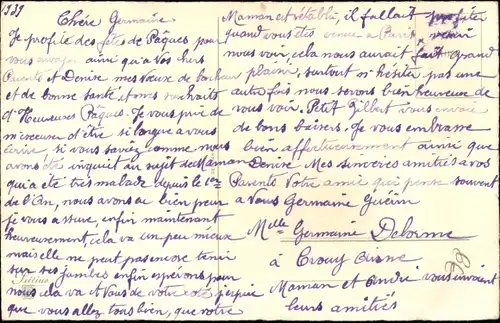 1939
Chère Germaine
Je profite des fêtes de Pâques pour
vous envoyer ainsi qu'a Vos chers
Parents et Denise mes vœux de bonheur
et de bonne santé et mes souhaits
d'Heureuses Pâques. Je vous prie de
m'excuser d'être si longue a vous
écrire, si vous saviez comme nous
avons été inquiet au sujet de Maman
qui a été très malade depuis le 1er
de l'An, nous avons eu bien peur
je vous assure, enfin maintenant
heureusement, cela va un peu mieux
mais elle ne peut pas encore tenir
sur ses jambes enfin espérons pour
nous cela va et Vous de votre côté j'espère
que vous allez tous bien, que votre
Maman est rétablie, il fallait profiter
quand vous êtes venue a Paris venir
nous voir, cela nous aurait fait grand
plaisir, surtout n'hésiter pas une
autre fois nous serons bien heureuse de
vous voir. Petit Gilbert vous envoie
de bons baisers. Je vous embrasse
bien affectueusement ainsi que
Denise. Mes sincères amitiés a vos
Parents Votre amie qui pense souvent
a Vous Germaine Guérin
Melle Germaine Delorme
à Crouy Aisne
Maman et André vous envoient
leurs amitiés